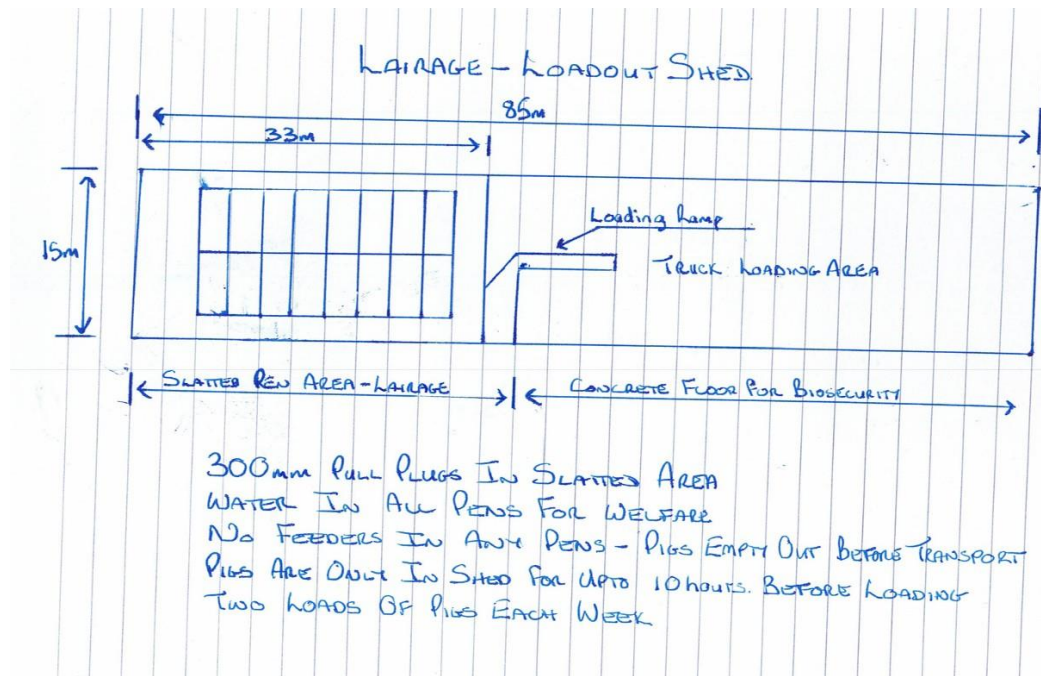 LAIRAGE - LOADOUT SHED
85m
33m
15m
Loading Ramp
TRUCK LOADING AREA
SLATTED PEN AREA - LAIRAGE
CONCRETE FLOOR FOR BIOSECURITY
300mm PULL PLUGS IN SLATTED AREA
WATER IN ALL PENS FOR WELFARE
NO FEEDERS IN ANY PENS - PIGS EMPTY OUT BEFORE TRANSPORT
PIGS ARE ONLY IN SHED FOR UPTO 10 hours. BEFORE LOADING
TWO LOADS OF PIGS EACH WEEK